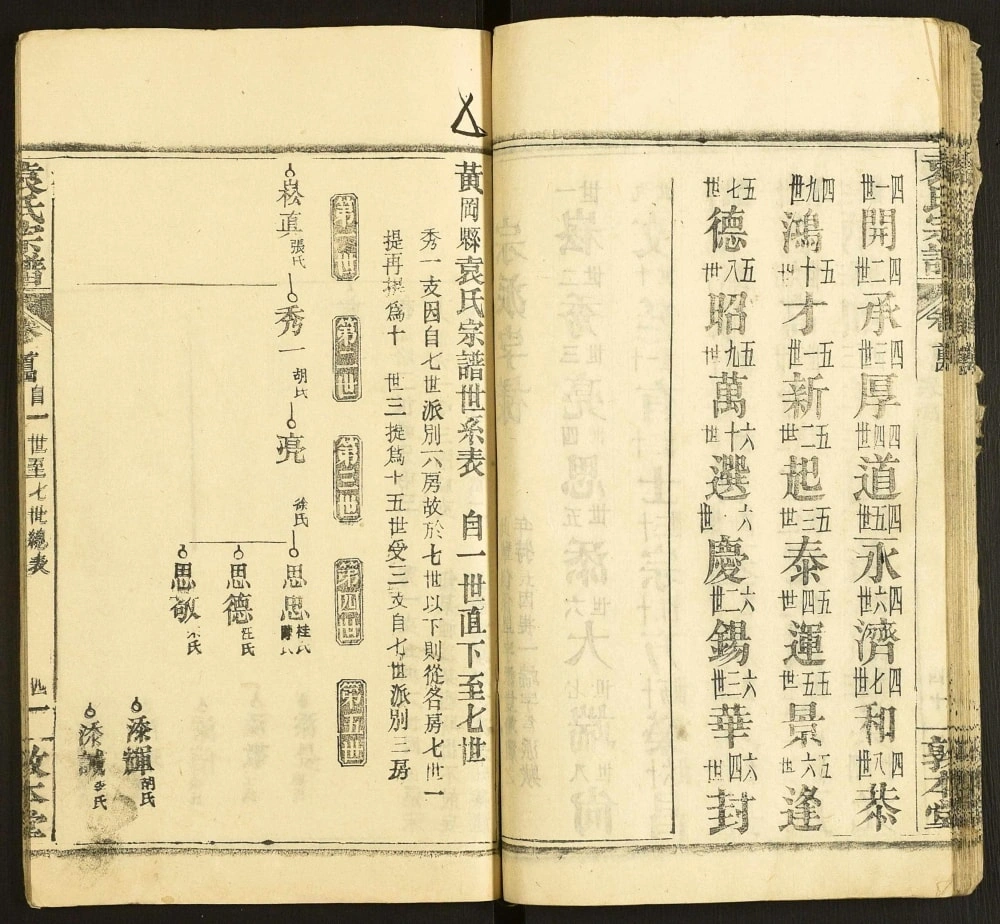 袁氏宗譜 卷首 敦本堂
四一世開四二世承四三世厚四四世道四五世永四六世濟四七世和四八世恭
四九世鴻五十世才五一世新五二世起五三世泰五四世運五五世景五六世逢
五七世德五八世昭五九世萬六十世選六世慶六二世錫六三世華六四世封
黃岡縣袁氏宗譜世系表 自一世直下至七世
秀一支因自七世派別六房故於七世以下則從各房七世一
提再提爲十 世三提爲十五世受三支自七世派別三房
第一世 第二世 第三世 第四世 第五世
崧直 張氏
秀一 胡氏
亮 徐氏
思忠 桂氏
思德 汪氏
思敬 氏
添輝 胡氏
添誠 李氏
袁氏宗譜 卷首 自一世至七世總表 四一 敦本堂